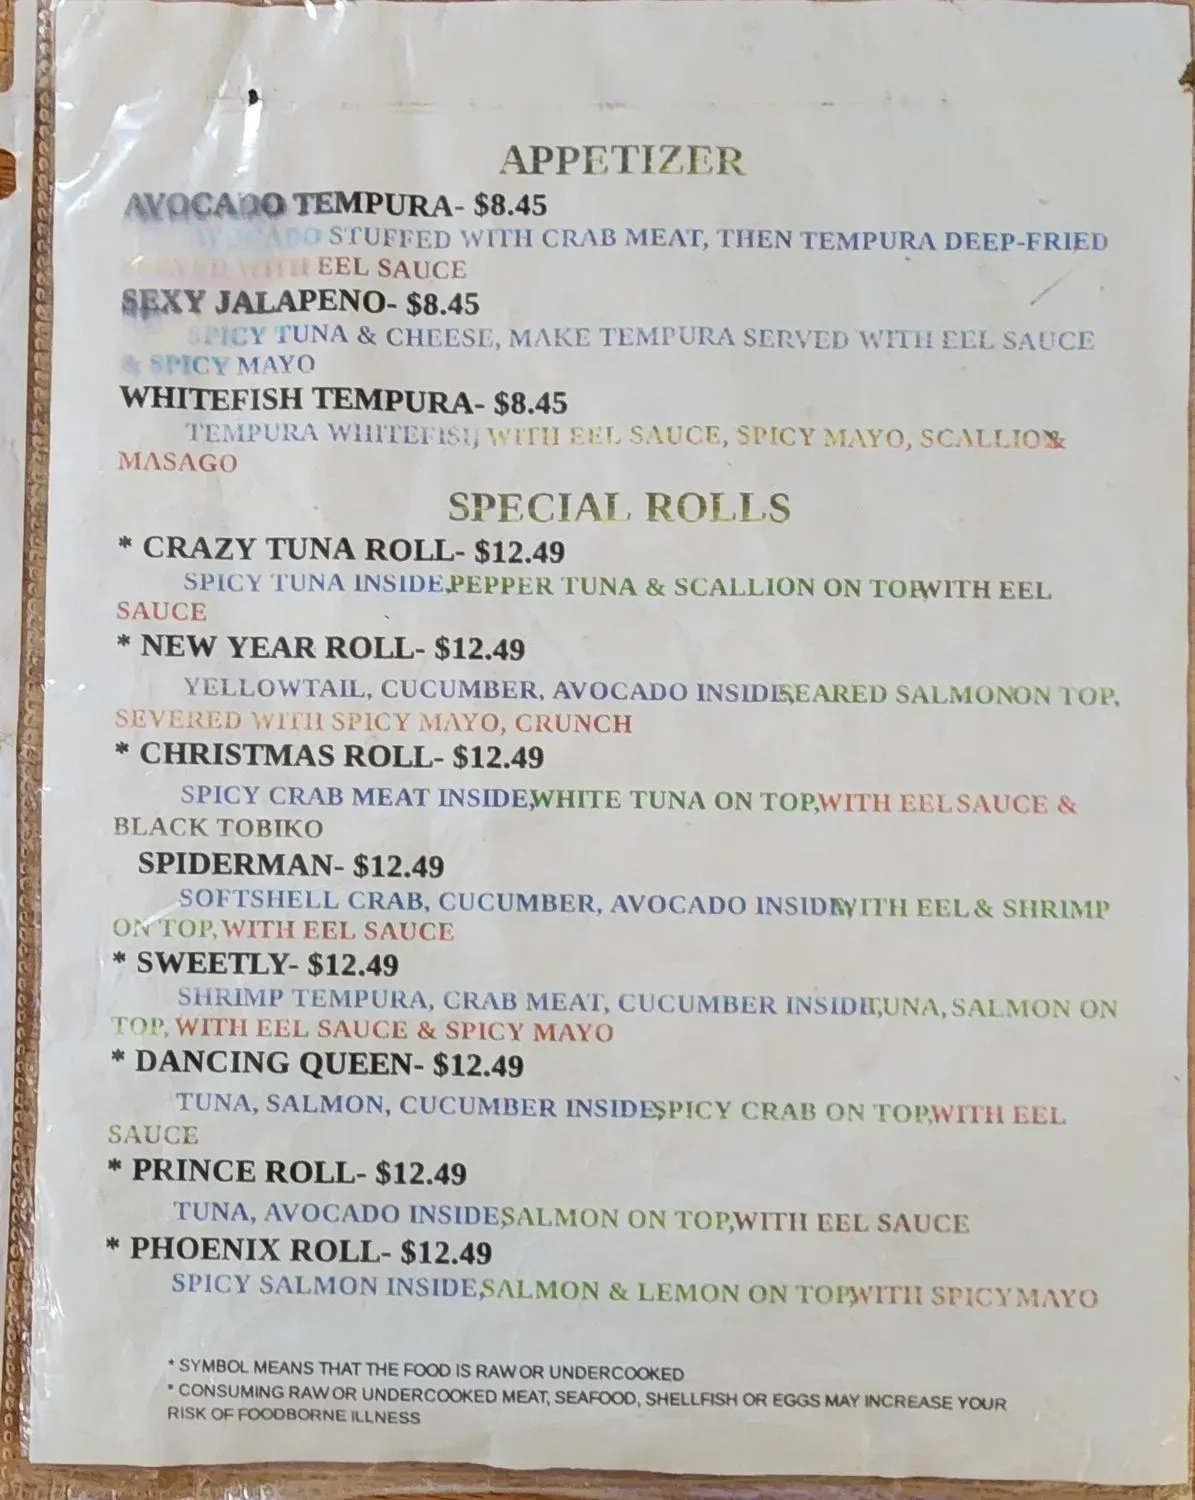 APPETIZER
AVOCADO TEMPURA- $8.45
AVOCADO STUFFED WITH CRAB MEAT, THEN TEMPURA DEEP-FRIED
SERVED WITH EEL SAUCE
SEXY JALAPENO- $8.45
SPICY TUNA & CHEESE, MAKE TEMPURA SERVED WITH EEL SAUCE
& SPICY MAYO
WHITEFISH TEMPURA- $8.45
TEMPURA WHITEFISH, WITH EEL SAUCE, SPICY MAYO, SCALLION &
MASAGO
SPECIAL ROLLS
* CRAZY TUNA ROLL- $12.49
SPICY TUNA INSIDE, PEPPER TUNA & SCALLION ON TOP, WITH EEL
SAUCE
* NEW YEAR ROLL- $12.49
YELLOWTAIL, CUCUMBER, AVOCADO INSIDE, SEARED SALMONON TOP,
SEVERED WITH SPICY MAYO, CRUNCH
* CHRISTMAS ROLL- $12.49
SPICY CRAB MEAT INSIDE, WHITE TUNA ON TOP, WITH EEL SAUCE &
BLACK TOBIKO
SPIDERMAN- $12.49
SOFTSHELL CRAB, CUCUMBER, AVOCADO INSIDE, WITH EEL & SHRIMP
ON TOP, WITH EEL SAUCE
* SWEETLY- $12.49
SHRIMP TEMPURA, CRAB MEAT, CUCUMBER INSIDE, TUNA, SALMON ON
TOP, WITH EEL SAUCE & SPICY MAYO
* DANCING QUEEN- $12.49
TUNA, SALMON, CUCUMBER INSIDE, SPICY CRAB ON TOP, WITH EEL
SAUCE
* PRINCE ROLL- $12.49
TUNA, AVOCADO INSIDE, SALMON ON TOP, WITH EEL SAUCE
* PHOENIX ROLL- $12.49
SPICY SALMON INSIDE, SALMON & LEMON ON TOP, WITH SPICY MAYO
* SYMBOL MEANS THAT THE FOOD IS RAW OR UNDERCOOKED
* CONSUMING RAW OR UNDERCOOKED MEAT, SEAFOOD, SHELLFISH OR EGGS MAY INCREASE YOUR
RISK OF FOODBORNE ILLNESS